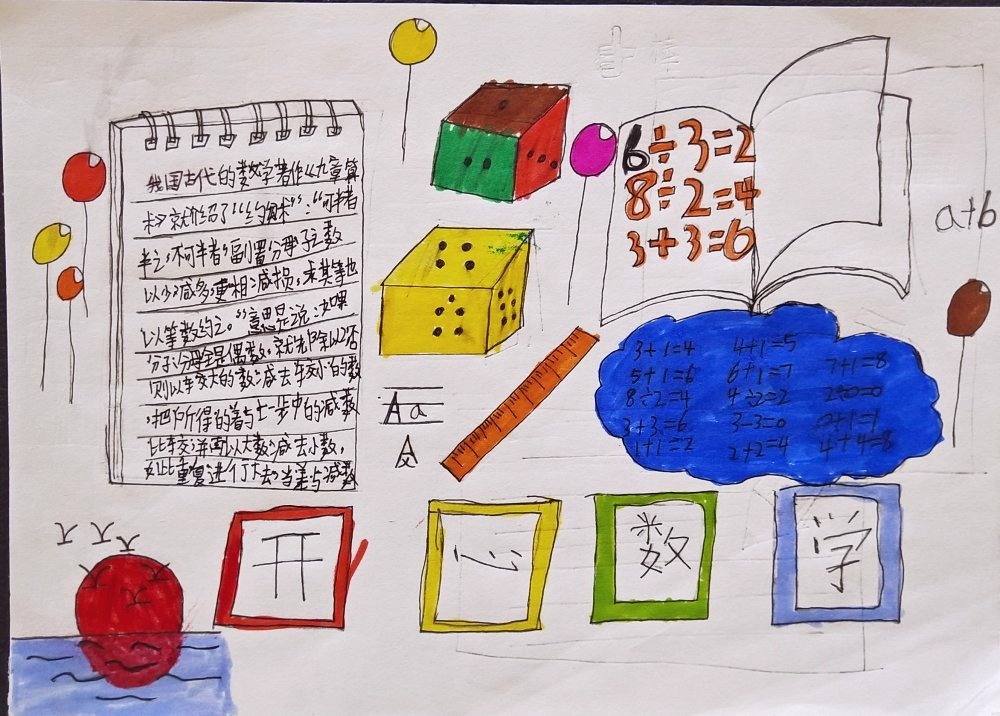 我国古代的数学著作《九章算
术》就介绍了“约分术”:“可半者
半之,不可半者,副置分母子之数
以少减多,更相减损,求其等也
以等数约之。”意思是说:如果
分子、分母全是偶数,就先除以2,否
则以较大的数减去较小的数
,把所得的差与上一步中的减数
比较,并再以大数减去小数,
如此重复进行下去,当差与减数
6÷3=2
8÷2=4
3+3=6
a+b
3+1=4 4+1=5
5+1=6 6+1=7 7+1=8
8÷2=4 4÷2=2
3+3=6 3-3=0 0+1=1
1+1=2 2+2=4 4+4=8
Aa
A
开 心 数 学